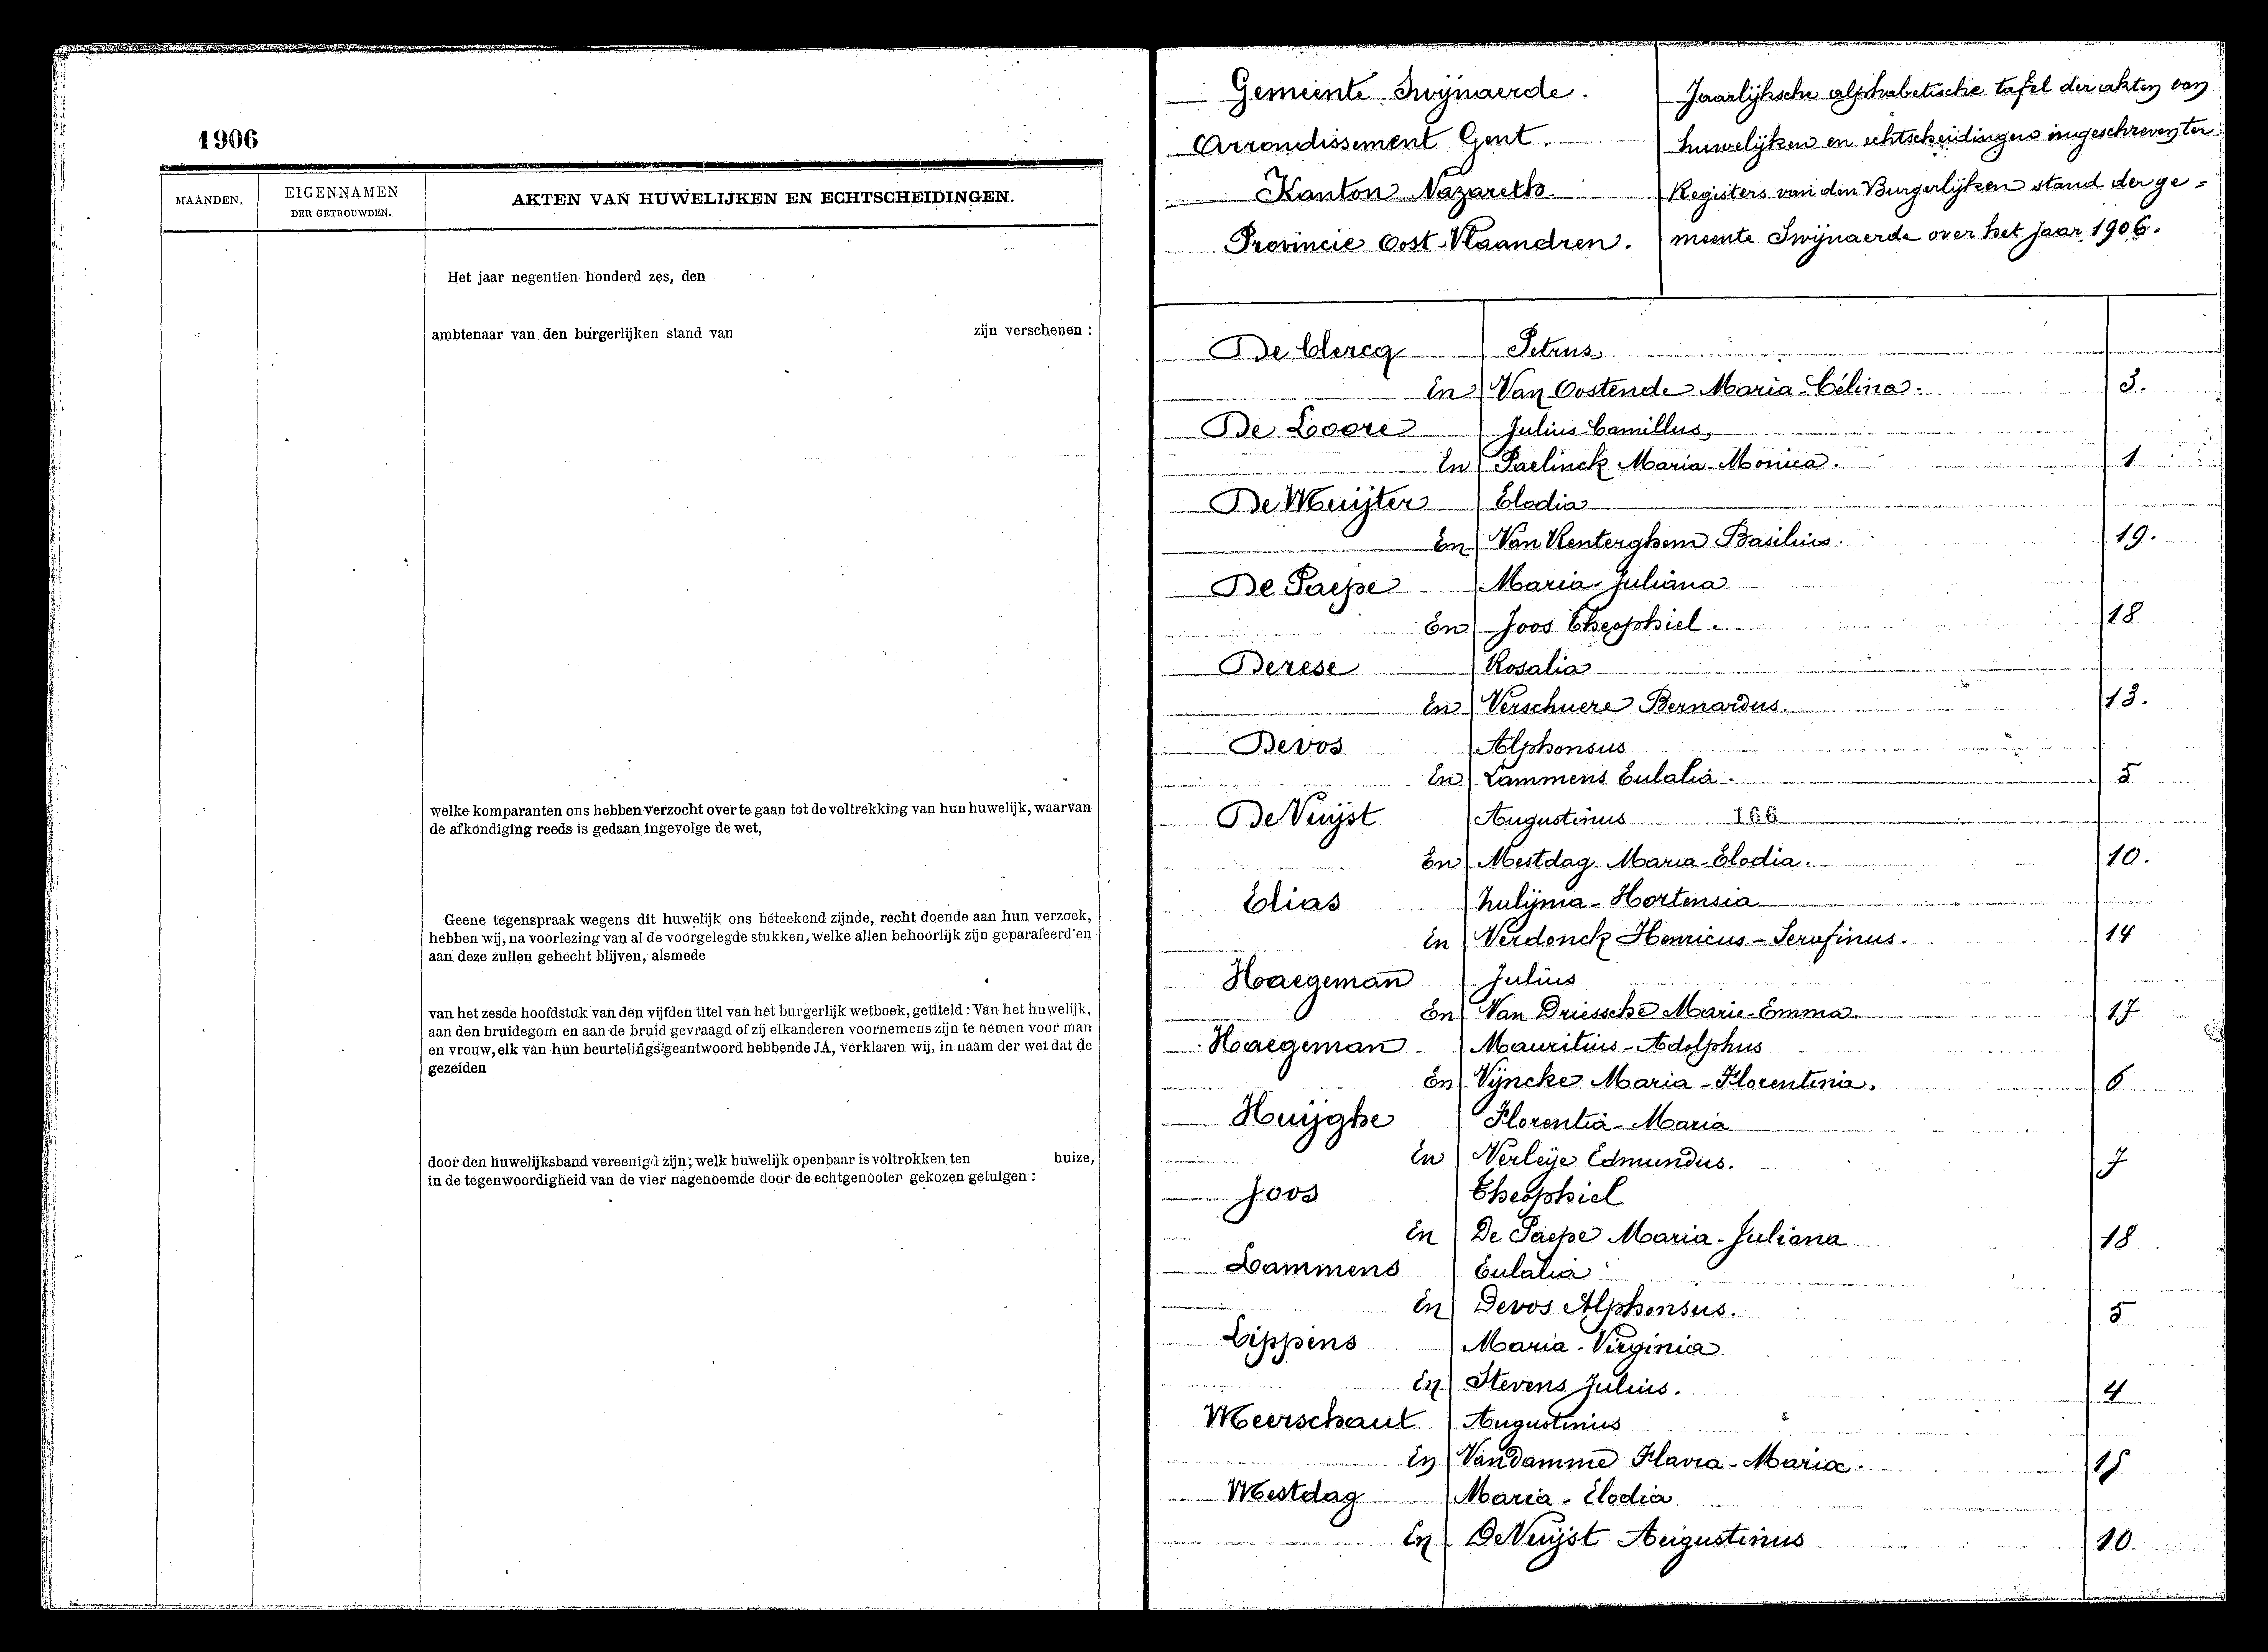 1906
MAANDEN.
EIGENNAMEN
DER GETROUWDEN.
AKTEN VAN HUWELIJKEN EN ECHTSCHEIDINGEN.
Het jaar negentien honderd zes, den
ambtenaar van den burgerlijken stand van zijn verschenen :
welke komparanten ons hebben verzocht over te gaan tot de voltrekking van hun huwelijk, waarvan
de afkondiging reeds is gedaan ingevolge de wet,
Geene tegenspraak wegens dit huwelijk ons beteekend zijnde, recht doende aan hun verzoek,
hebben wij, na voorlezing van al de voorgelegde stukken, welke allen behoorlijk zijn geparafeerd en
aan deze zullen gehecht blijven, alsmede
van het zesde hoofdstuk van den vijfden titel van het burgerlijk wetboek, getiteld : Van het huwelijk,
aan den bruidegom en aan de bruid gevraagd of zij elkanderen voornemens zijn te nemen voor man
en vrouw, elk van hun beurtelings geantwoord hebbende JA, verklaren wij, in naam der wet dat de
gezeiden
door den huwelijksband vereenigd zijn; welk huwelijk openbaar is voltrokken ten huize,
in de tegenwoordigheid van de vier nagenoemde door de echtgenooten gekozen getuigen :
Gemeente Swijnaerde.
Arrondissement Gent.
Kanton Nazareth.
Provincie Oost-Vlaandren.
Jaarlijksche alphabetische tafel der akten van
huwelijken en echtscheidingen ingeschreven ter
Registers van den Burgerlijken stand der ge=
meente Swijnaerde over het jaar 1906.
De Clercq Petrus,
En Van Oostende Maria-Célina. 3.
De Loore Julius-Camillus,
En Paelinck Maria-Monica. 1
De Muijter Elodia
En Van Renterghem Basilius. 19.
De Paepe Maria-Juliana
En Joos Theophiel. 18
Derese Rosalia
En Verschuere Bernardus. 13.
Devos Alphonsus
En Lammens Eulalia. 5
De Vuijst Augustinus 166
En Mestdag Maria-Elodia. 10.
Elias Zulijma-Hortensia
En Verdonck Henricus-Serafinus. 14
Haegeman Julius
En Van Driessche Marie-Emma. 17
Haegeman Mauritius-Adolphus
En Vijncke Maria-Florentina. 6
Huijghe Florentia-Maria
En Verleije Edmundus. 7
Joos Theophiel
En De Paepe Maria-Juliana 18
Lammens Eulalia
En Devos Alphonsus. 5
Lippens Maria-Virginia
En Stevens Julius. 4
Meerschaut Augustinus
En Vandamme Flavia-Maria.
Mestdag Maria-Elodia
En De Vuijst Augustinus 10.